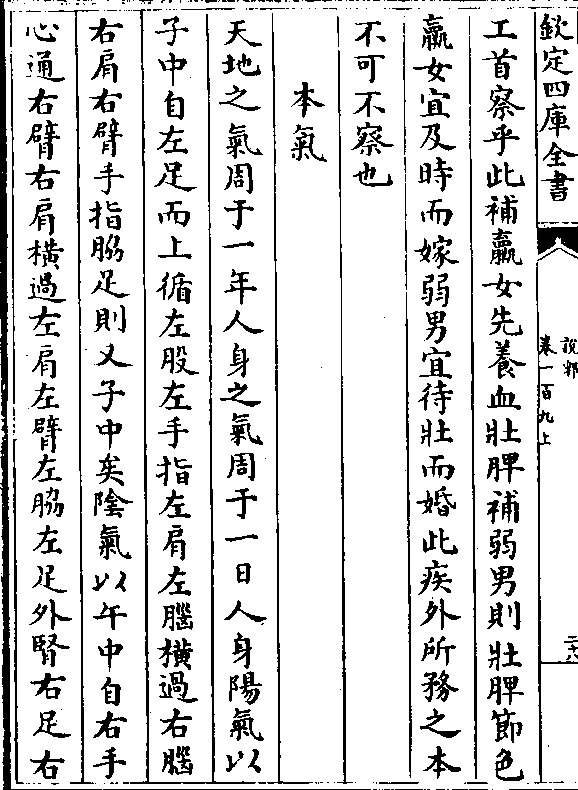 欽定四庫全書
說郛
卷一百九上
二十八
工首察乎此補羸女先養血壯脾補弱男則壯脾節色
羸女宜及時而嫁弱男宜待壯而婚此疾外所務之本
不可不察也
本氣
天地之氣周于一年人身之氣周于一日人身陽氣以
子中自左足而上循左股左手指左肩左腦橫過右腦
右肩右臂手指脇足則又子中矣陰氣以午中自右手
心通右臂右肩橫過左肩左臂左脇左足外腎右足右